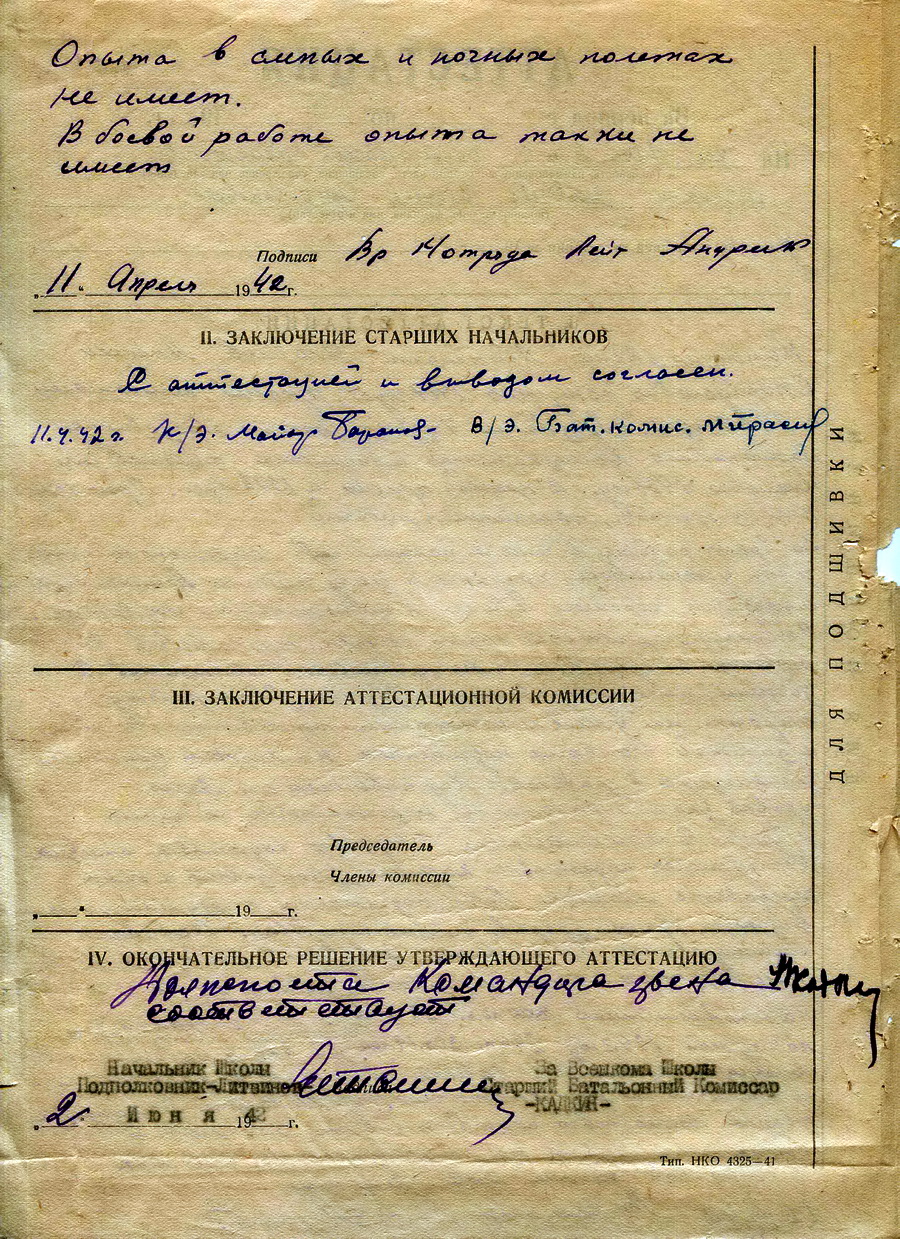 Опыта в слепых и ночных полетах
не имеет.
В боевой работе опыта также не
имеет
Подписи Вр Лейт
„11" Апрель 1942 г.
II. ЗАКЛЮЧЕНИЕ СТАРШИХ НАЧАЛЬНИКОВ
С аттестацией и выводом согласен.
11.4.42 г. К/Э. Майор Баранов В/Э. Бат. комис.
III. ЗАКЛЮЧЕНИЕ АТТЕСТАЦИОННОЙ КОМИССИИ
Председатель
Члены комиссии
„ " 19 г.
IV. ОКОНЧАТЕЛЬНОЕ РЕШЕНИЕ УТВЕРЖДАЮЩЕГО АТТЕСТАЦИЮ
Должности Командира звена
соответствует
Начальник Школы За Военкома Школы
Подполковник-Литвинов Старший Батальонный Комиссар
-КАДКИН-
„2" Июня 1942 г.
Тип. НКО 4325—41
ДЛЯ ПОДШИВКИ